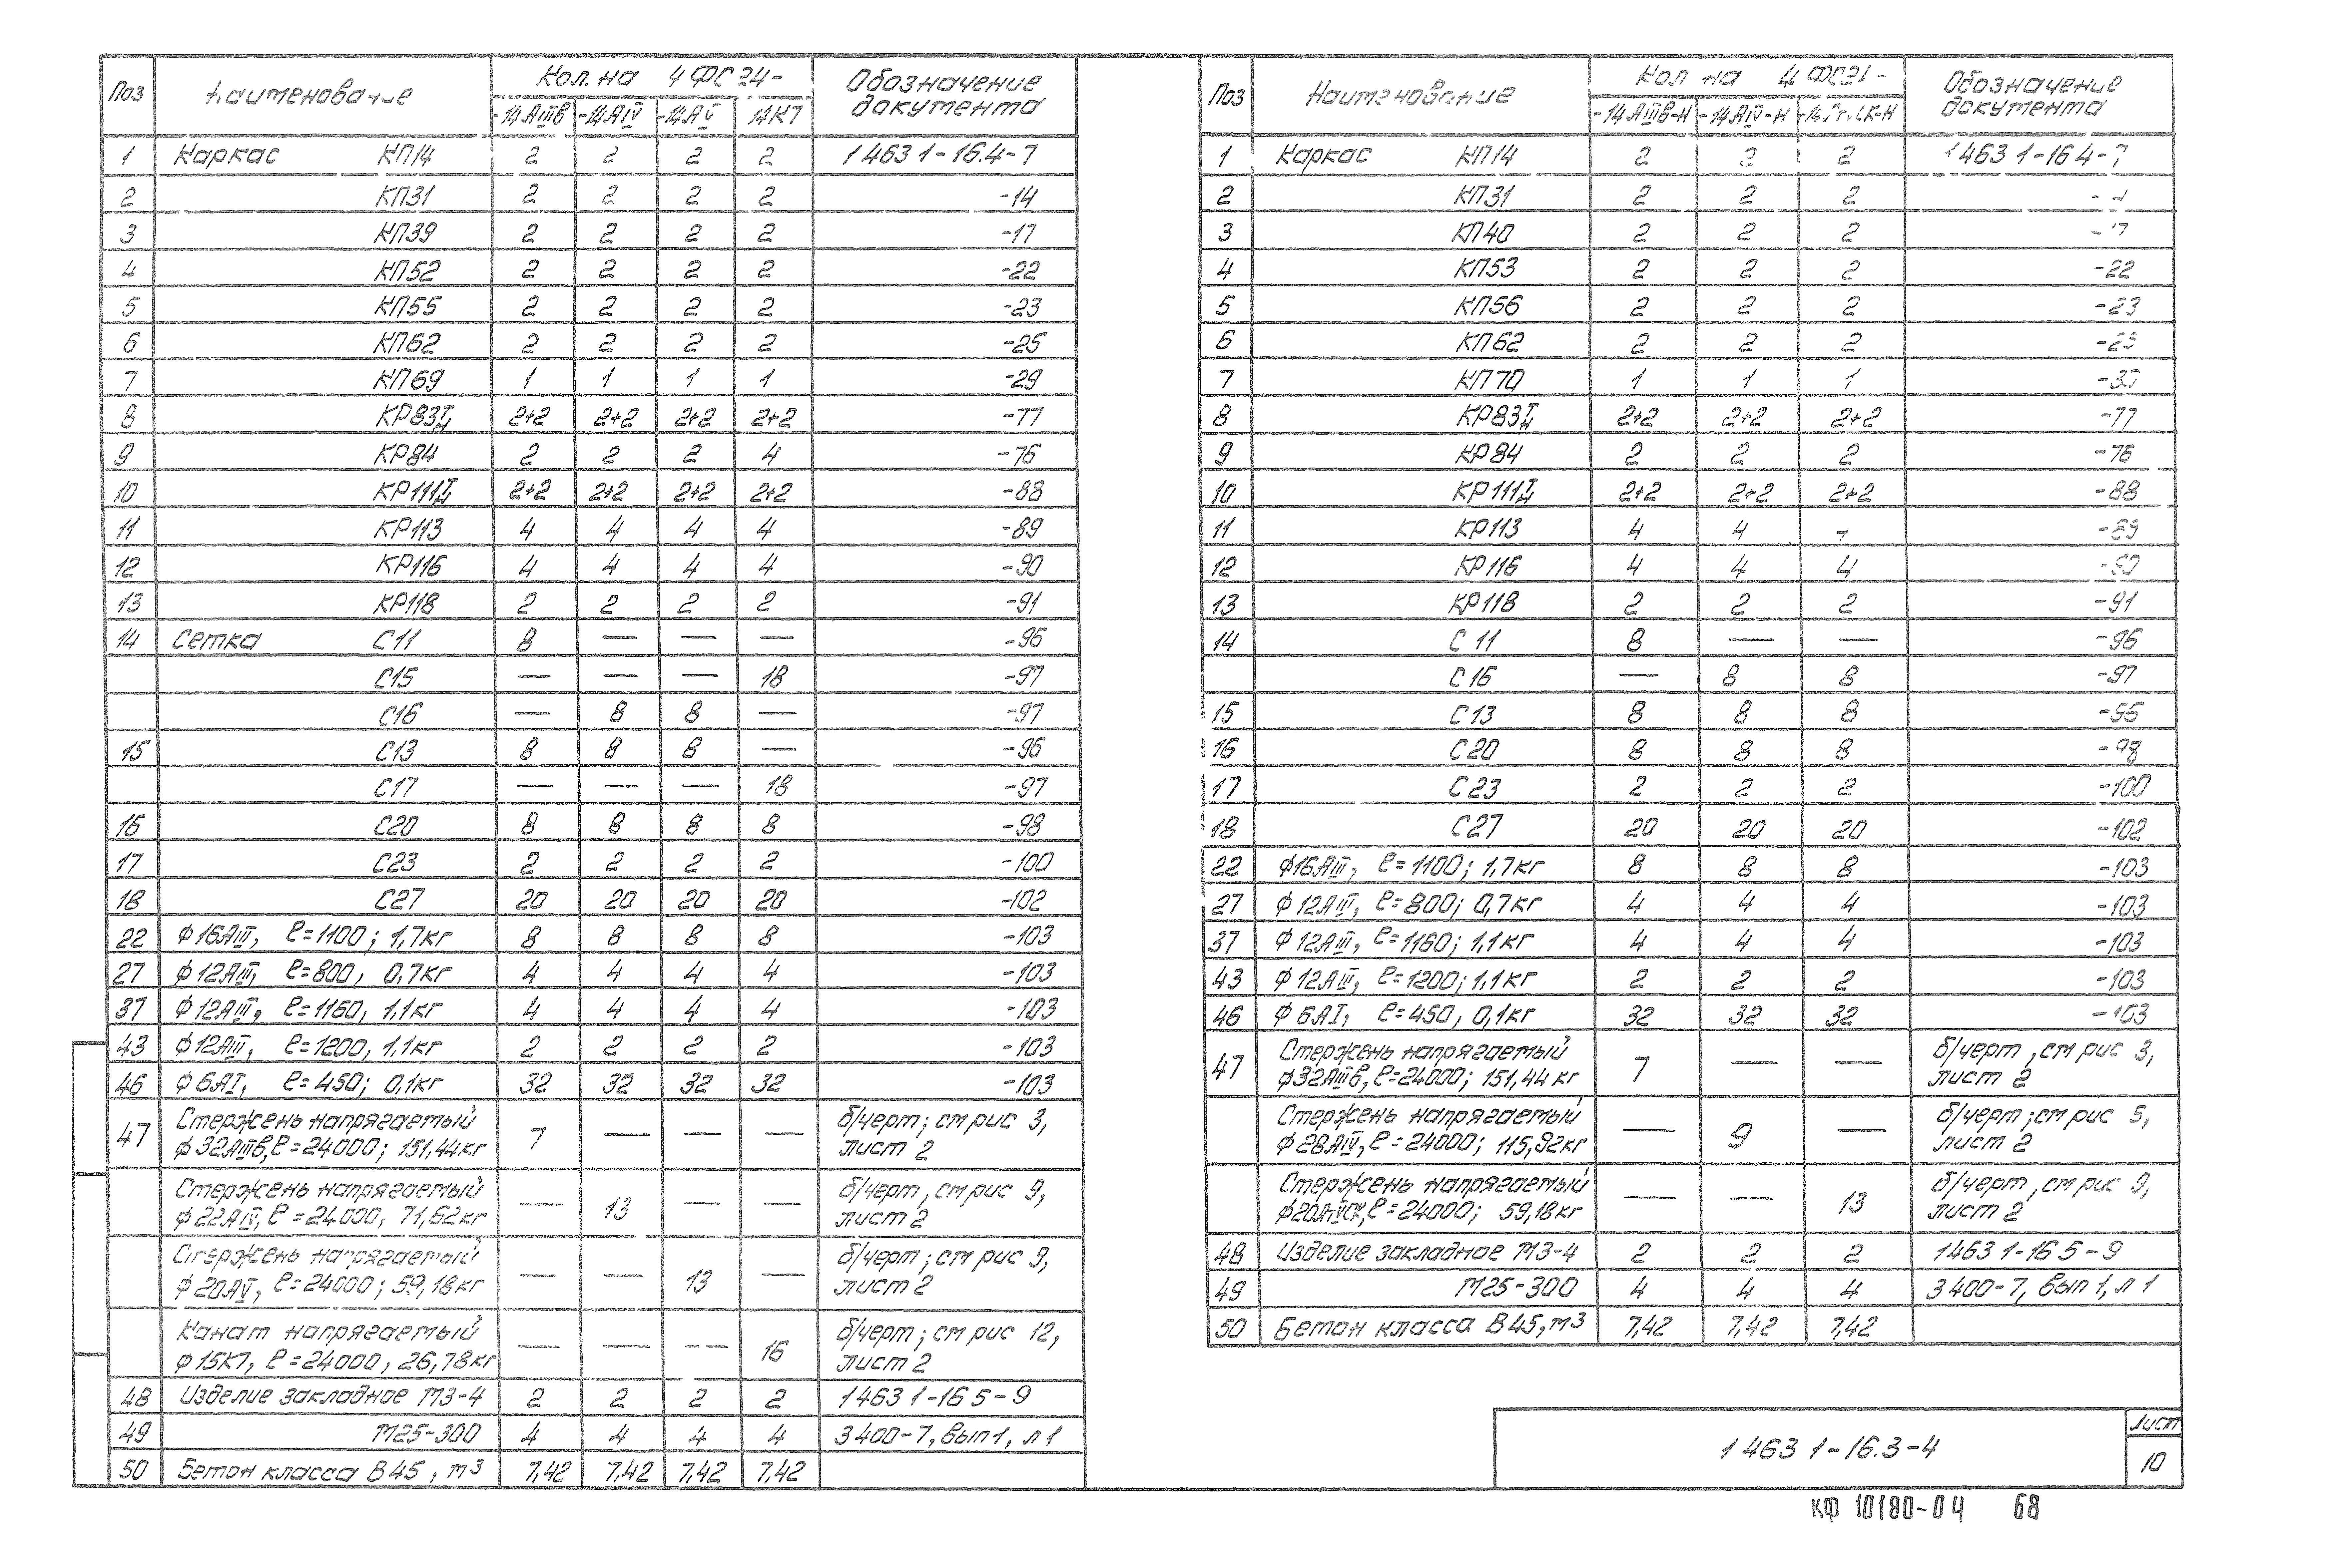 Поз Наименование Кол. на 4ФС24- Обозначение документа
-14АIIIв -14АIV -14АV 14К7
1 Каркас КП14 2 2 2 2 1 463 1-16.4-7
2 КП31 2 2 2 2 -14
3 КП39 2 2 2 2 -17
4 КП52 2 2 2 2 -22
5 КП55 2 2 2 2 -23
6 КП62 2 2 2 2 -25
7 КП69 1 1 1 1 -29
8 КР83Т/Н 2+2 2+2 2+2 2+2 -77
9 КР84 2 2 2 4 -76
10 КР111Т/Н 2+2 2+2 2+2 2+2 -88
11 КР113 4 4 4 4 -89
12 КР116 4 4 4 4 -90
13 КР118 2 2 2 2 -91
14 Сетка С11 8 — — — -96
С15 — — — 18 -97
С16 — 8 8 — -97
15 С13 8 8 8 — -96
С17 — — — 18 -97
16 С20 8 8 8 8 -98
17 С23 2 2 2 2 -100
18 С27 20 20 20 20 -102
22 ф16АIII, ℓ=1100; 1,7кг 8 8 8 8 -103
27 ф12АIII, ℓ=800, 0,7кг 4 4 4 4 -103
37 ф12АIII, ℓ=1160, 1,1кг 4 4 4 4 -103
43 ф12АIII, ℓ=1200, 1,1кг 2 2 2 2 -103
46 ф6АI, ℓ=450; 0,1кг 32 32 32 32 -103
47 Стержень напрягаемый ф32АIIIв, ℓ=24000; 151,44кг 7 — — — б/черт; см рис 3, лист 2
Стержень напрягаемый ф22АIV, ℓ=24000, 71,62кг — 13 — — б/черт, см рис 9, лист 2
Стержень напрягаемый ф20АV, ℓ=24000; 59,18кг — — 13 — б/черт; см рис 9, лист 2
Канат напрягаемый ф15К7, ℓ=24000, 26,78кг — — — 16 б/черт; см рис 12, лист 2
48 Изделие закладное М3-4 2 2 2 2 1 463 1-16 5-9
49 М25-300 4 4 4 4 3 400-7, вып 1, л 1
50 Бетон класса В45, м3 7,42 7,42 7,42 7,42
Поз Наименование Кол на Обозначение документа
-14АIIIв-Н -14АIV-Н
1 Каркас КП14 2 2 2 1 463 1-16 4-7
2 КП31 2 2 2
3 КП40 2 2 2
4 КП53 2 2 2 -22
5 КП56 2 2 2 -23
6 КП62 2 2 2 -25
7 КП70 1 1 1
8 КР83Т/Н 2+2 2+2 2+2 -77
9 КР84 2 2 2 -76
10 КР111Т/Н 2+2 2+2 2+2 -88
11 КР113 4 4 -89
12 КР116 4 4 4 -90
13 КР118 2 2 2 -91
14 С 11 8 — — -96
С 16 — 8 8 -97
15 С 13 8 8 8 -96
16 С 20 8 8 8 -98
17 С 23 2 2 2 -100
18 С27 20 20 20 -102
22 ф16АIII, ℓ=1100; 1,7кг 8 8 8 -103
27 ф12АIII, ℓ=800; 0,7кг 4 4 4 -103
37 ф12АIII, ℓ=1160; 1,1кг 4 4 4 -103
43 ф12АIII, ℓ=1200; 1,1кг 2 2 2 -103
46 ф6АI, ℓ=450, 0,1кг 32 32 32 -103
47 Стержень напрягаемый ф32АIIIв, ℓ=24000; 151,44 кг 7 — — б/черт, см рис 3, лист 2
Стержень напрягаемый ф28АIV, ℓ=24000; 115,92кг — 9 — б/черт; см рис 5, лист 2
Стержень напрягаемый ф20АтVСК, ℓ=24000; 59,18кг — — 13 б/черт, см рис 9, лист 2
48 Изделие закладное М3-4 2 2 2 1 463 1-16 5-9
49 М25-300 4 4 4 3 400-7, вып 1, л 1
50 Бетон класса В45, м3 7,42 7,42 7,42
1 463 1-16.3-4
Лист
10
КФ 10180-04 68